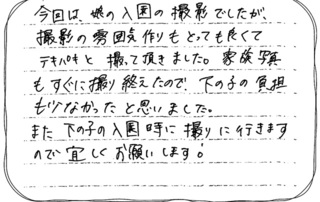 今回は、娘の入園の撮影でしたが、
撮影の雰囲気作りもとても良くて
テキパキと撮って頂きました。家族写真
もすぐに撮り終えたので、下の子の負担
も少なかったと思いました。
また下の子の入園時に撮りに行きます
ので宜しくお願いします!